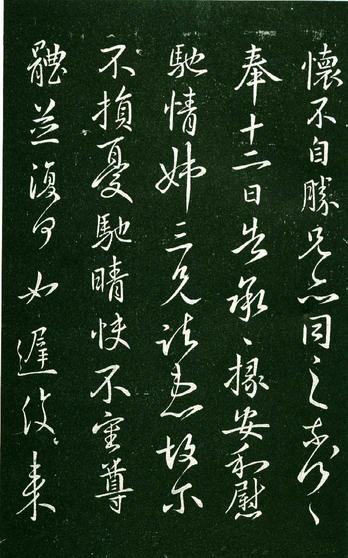 懷不自勝兄亦同之
奉十二日告承〻掾安和慰
馳情姊三兄諸患故尔
不損憂馳晴快不審尊
體並復何如遲後〻來